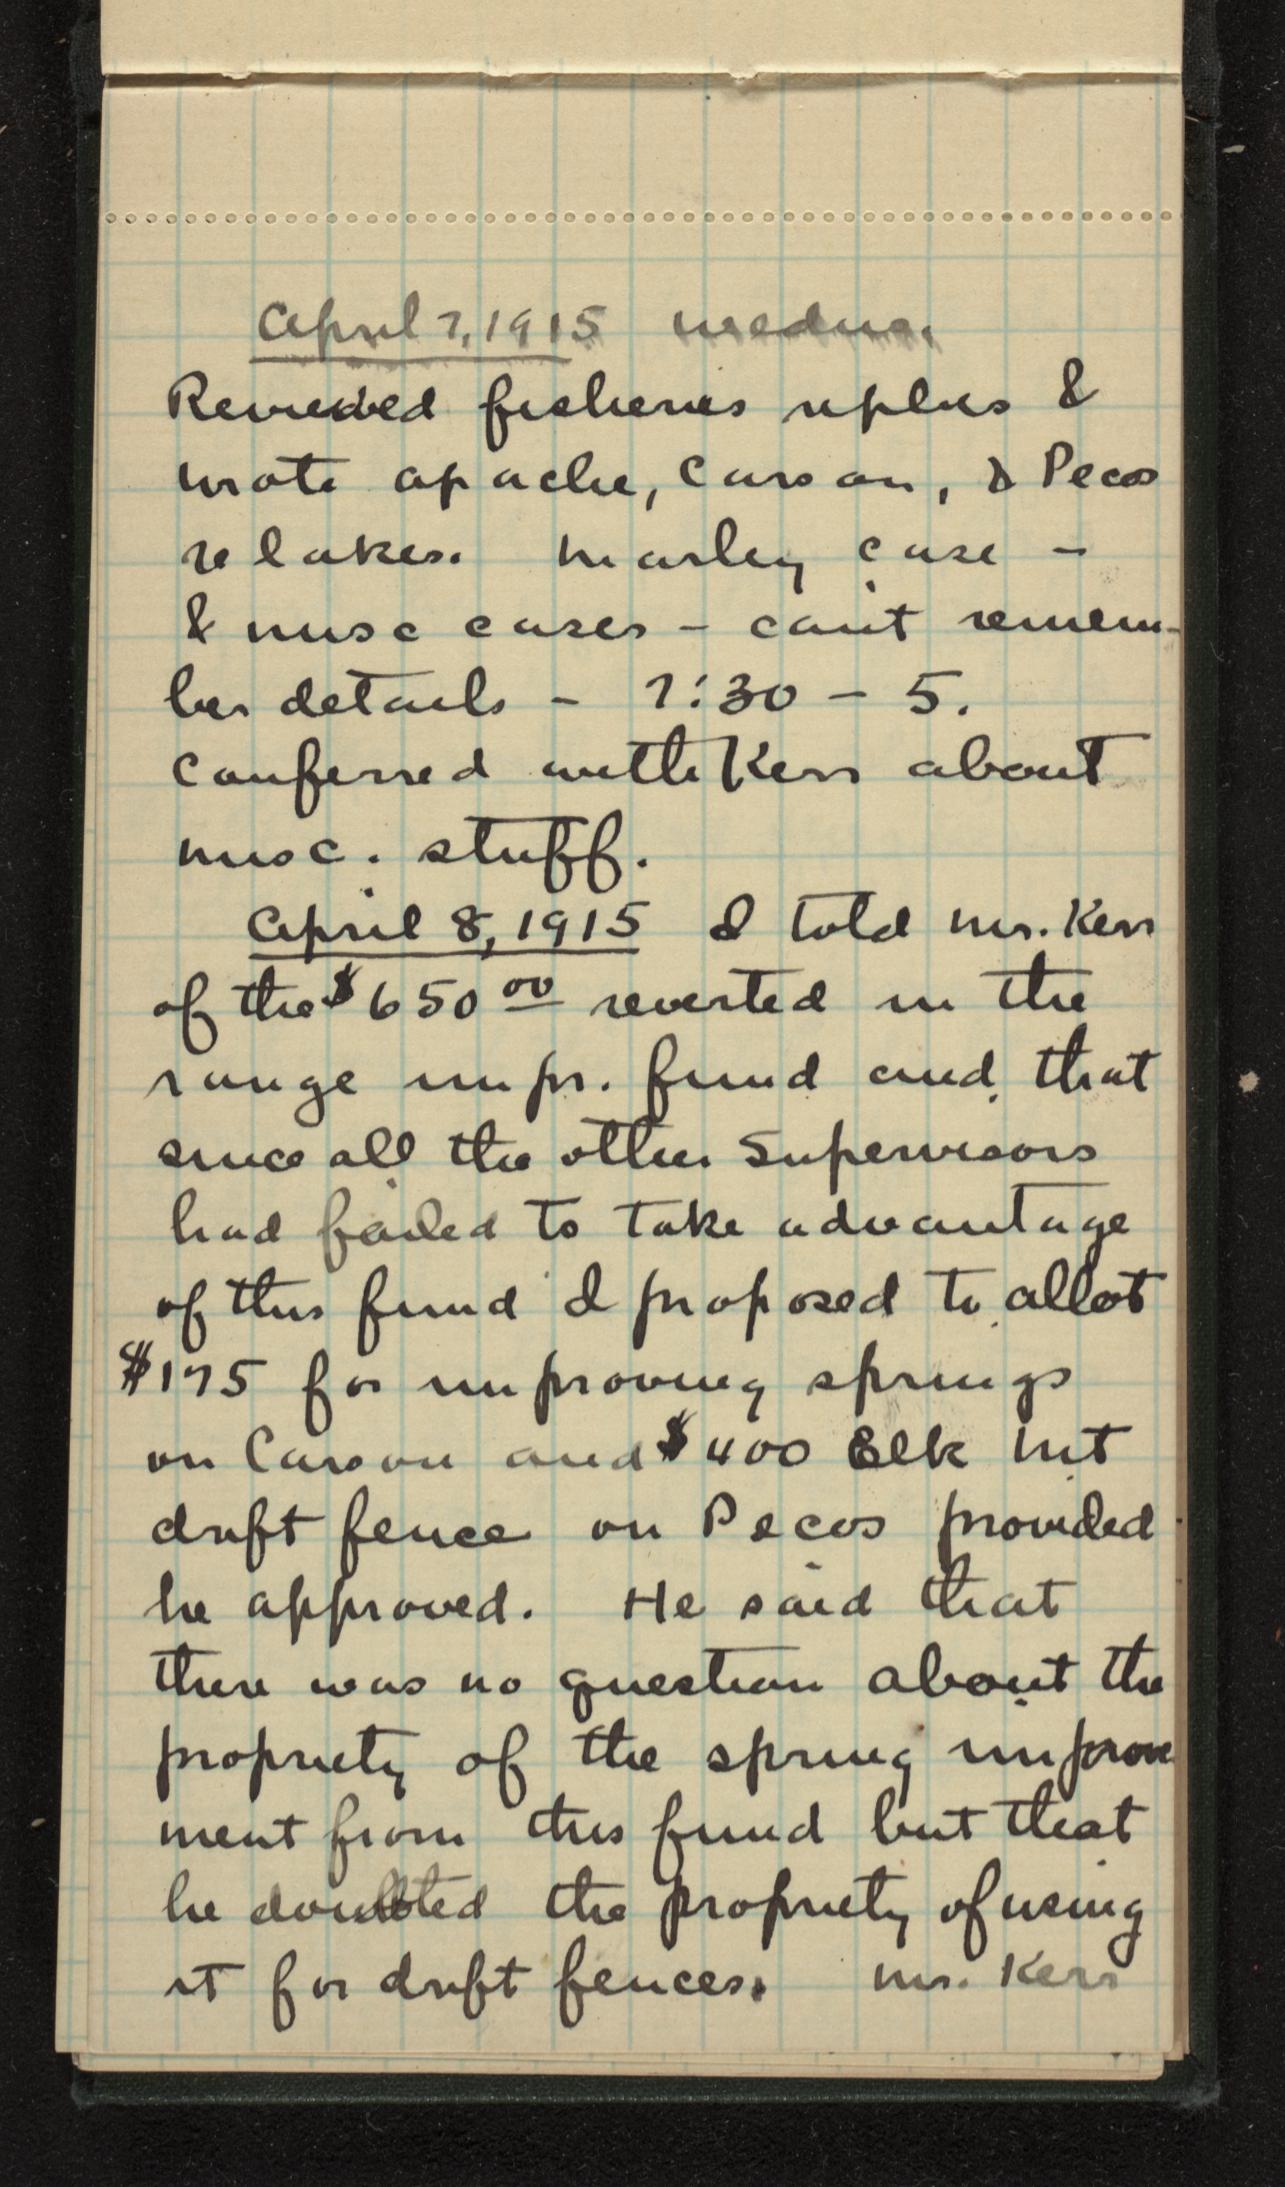 April 7, 1915 Wednes.
Reviewed fisheries replies &
wrote Apache, Carson, & Pecos
re lakes. Marley case –
& misc cases – can't remem-
ber details – 7:30 – 5.
Conferred with Kerr about
misc. stuff.
April 8, 1915 I told Mr. Kerr
of the $650 00 reverted in the
range impr. fund and that
since all the other Supervisors
had failed to take advantage
of this fund I proposed to allot
$175 for improving springs
on Carson and $400 Elk Mt
drift fence on Pecos provided
he approved. He said that
there was no question about the
propriety of the spring improve
ment from this fund but that
he doubted the propriety of using
it for drift fences. Mr. Kerr